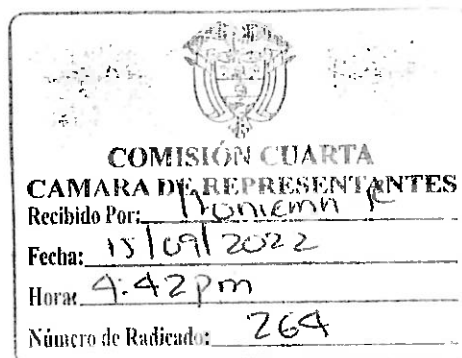 COMISIÓN CUARTA
CAMARA DE REPRESENTANTES
Recibido Por:
Fecha: 15/09/2022
Hora: 4:42pm
Número de Radicado: 264